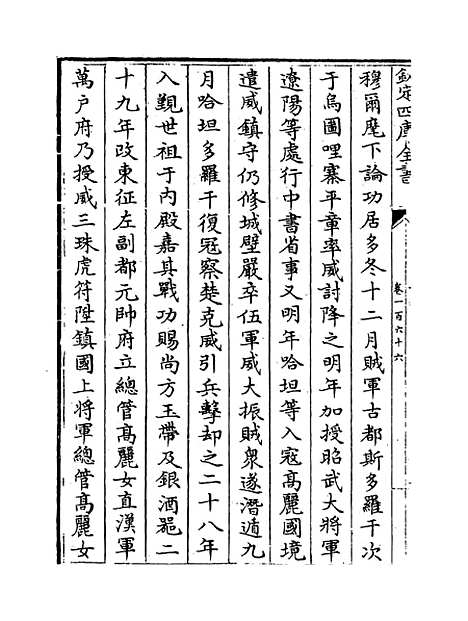 欽定四庫全書
卷一百六十六
穆爾麾下論功居多冬十二月賊軍古都斯多羅干次
于烏圖哩寨平章率威討降之明年加授昭武大將軍
遼陽等處行中書省事又明年哈坦等入寇髙麗國境
遣威鎮守仍修城壁嚴卒伍軍威大振賊衆遂潛遁九
月哈坦多羅干復寇察楚克威引兵擊却之二十八年
入覲世祖于内殿嘉其戰功賜尚方玉帶及銀酒器二
十九年改東征左副都元帥府立總管髙麗女直漢軍
萬户府乃授威三珠虎符陞鎮國上將軍總管髙麗女